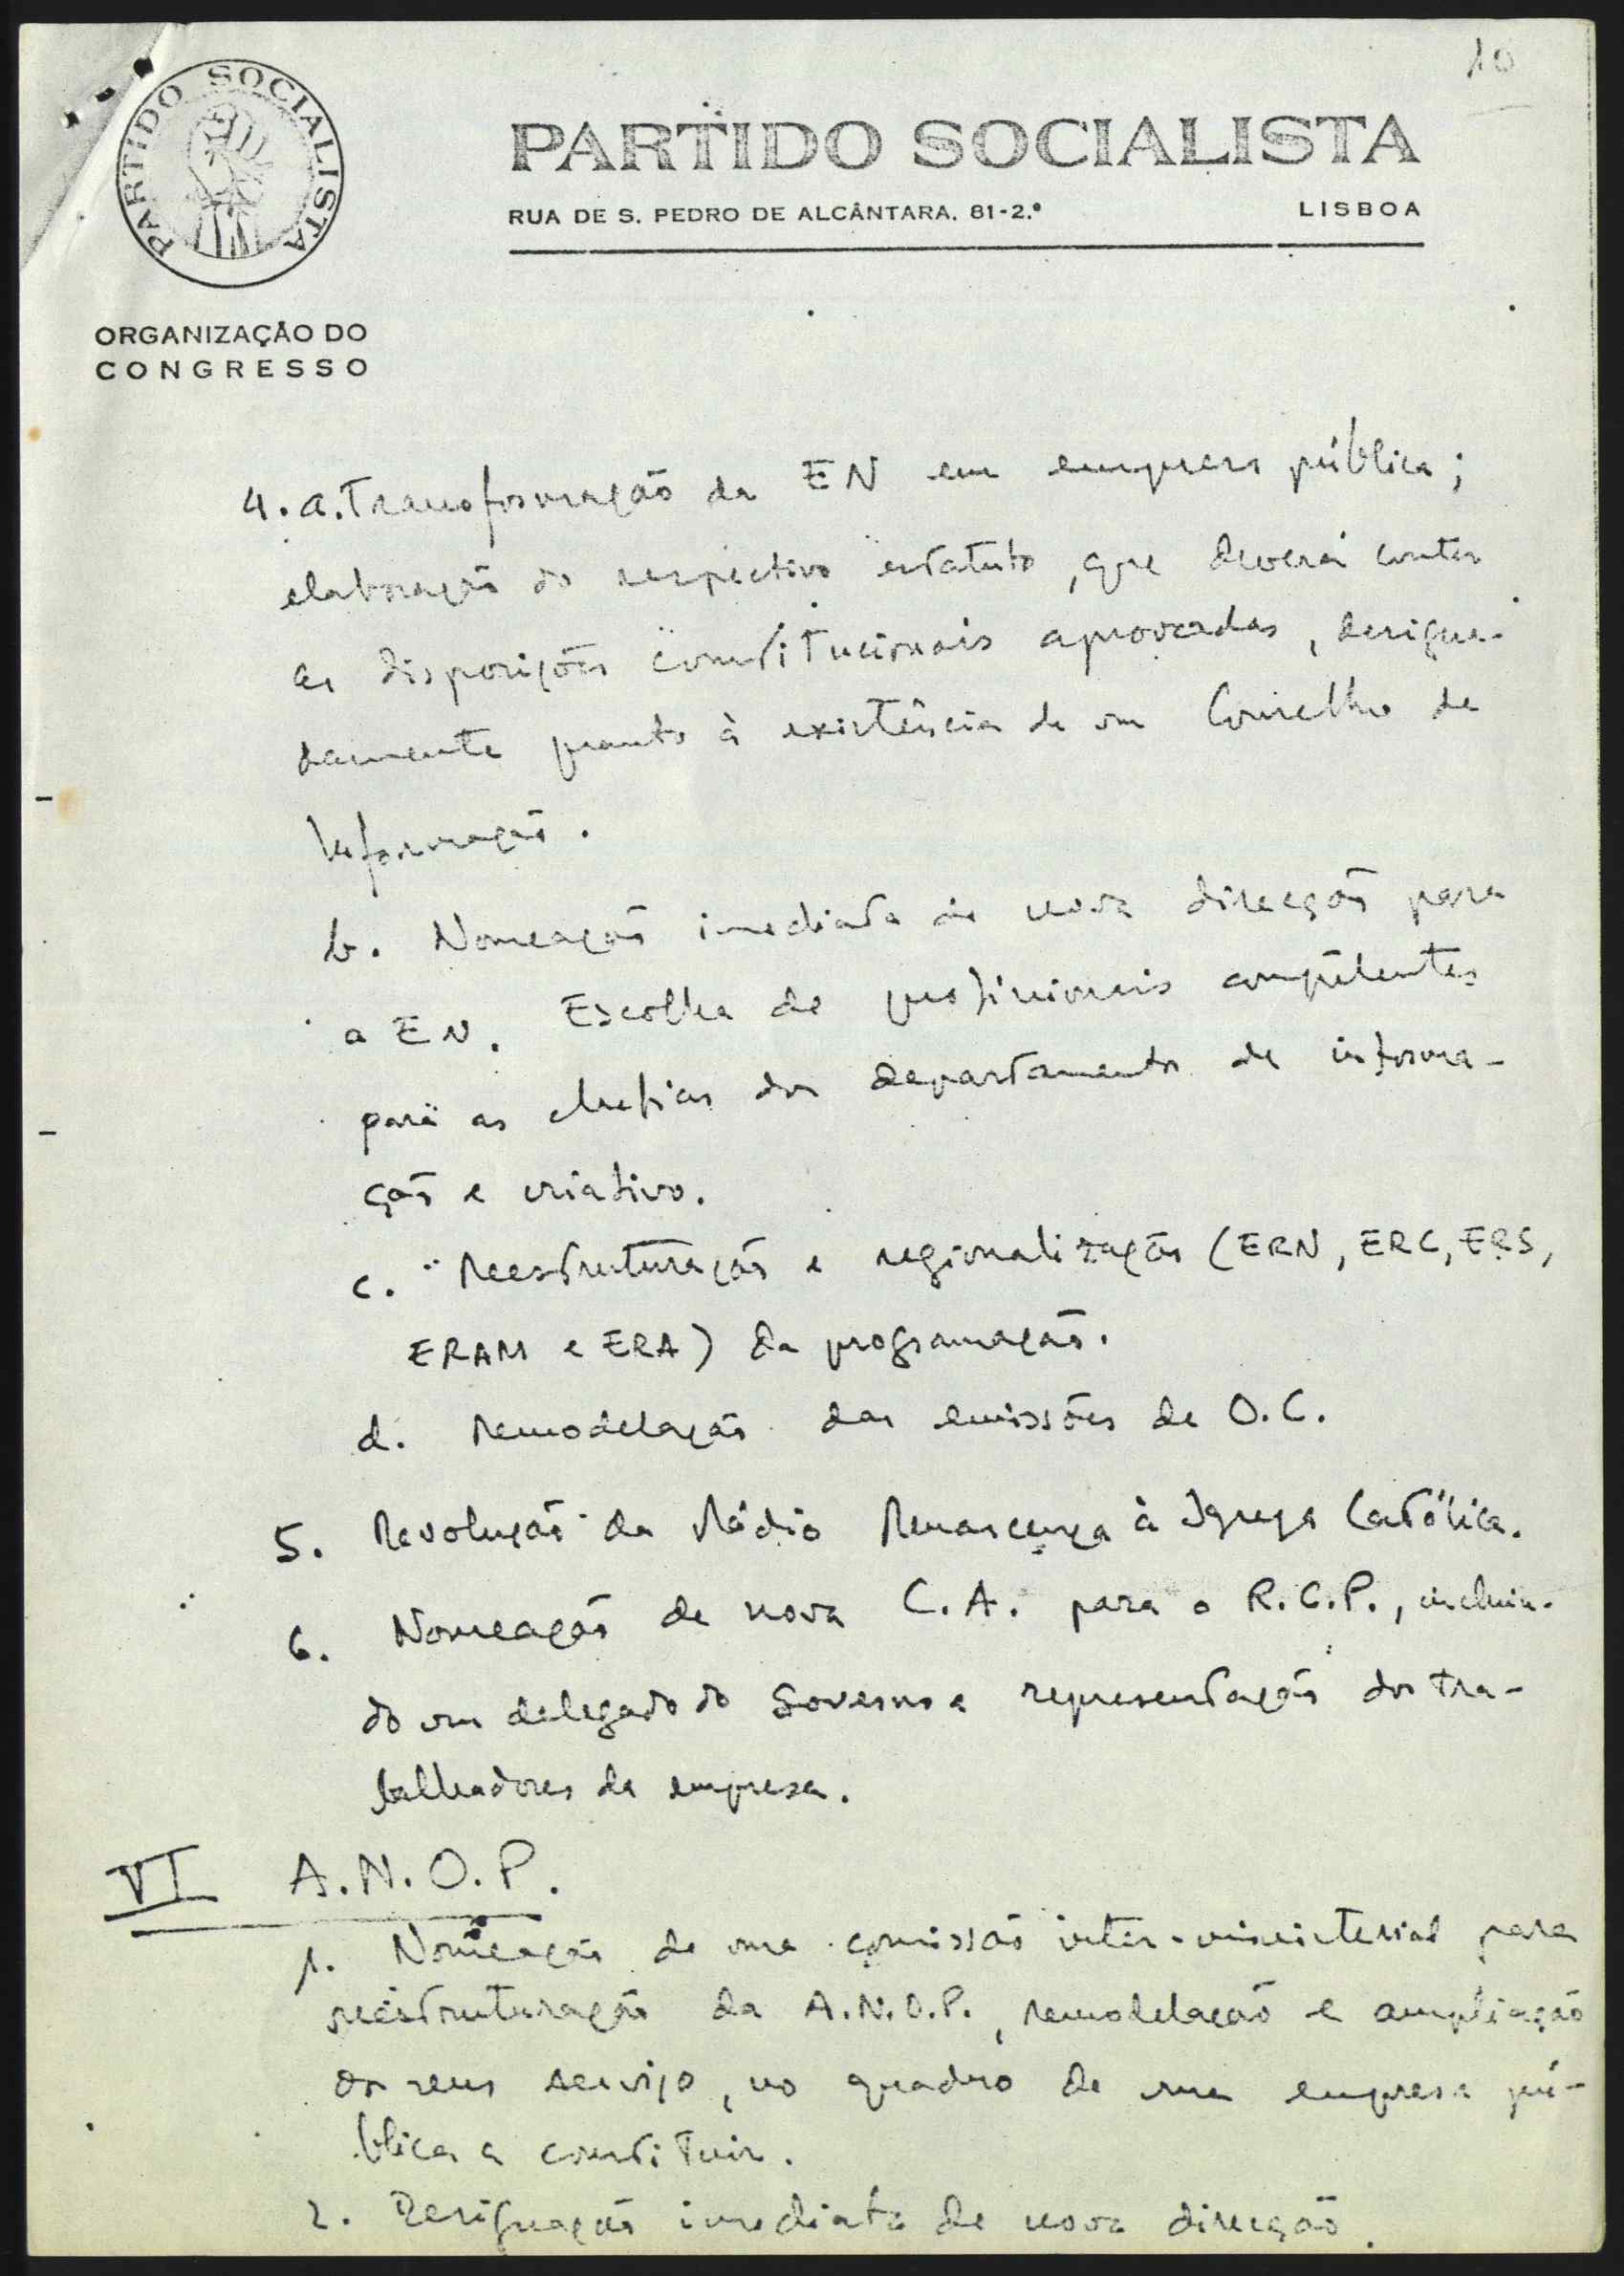 10
PARTIDO SOCIALISTA
PARTIDO SOCIALISTA
RUA DE S. PEDRO DE ALCÂNTARA, 81-2.º LISBOA
ORGANIZAÇÃO DO
CONGRESSO
4. a. Transformação da EN em empresa pública;
elaboração do respectivo estatuto, que deverá conter
as disposições constitucionais aprovadas, designa-
damente quanto à existência de um Conselho de
Informação.
b. Nomeação imediata de nova direcção para
a EN. Escolha de profissionais competentes
para as chefias dos departamentos de informa-
ção e criativo.
c. Reestruturação e regionalização (ERN, ERC, ERS,
ERAM e ERA) da programação.
d. Remodelação das emissões de O.C.
5. Devolução da Rádio Renascença à Igreja Católica.
6. Nomeação de nova C.A. para o R.C.P., incluin-
do um delegado do Governo e representação dos tra-
balhadores da empresa.
VI A.N.O.P.
1. Nomeação de uma comissão inter-ministerial para
reestruturação da A.N.O.P., remodelação e ampliação
dos seus serviço, no quadro de uma empresa pú-
blica a constituir.
2. Designação imediata de nova direcção.